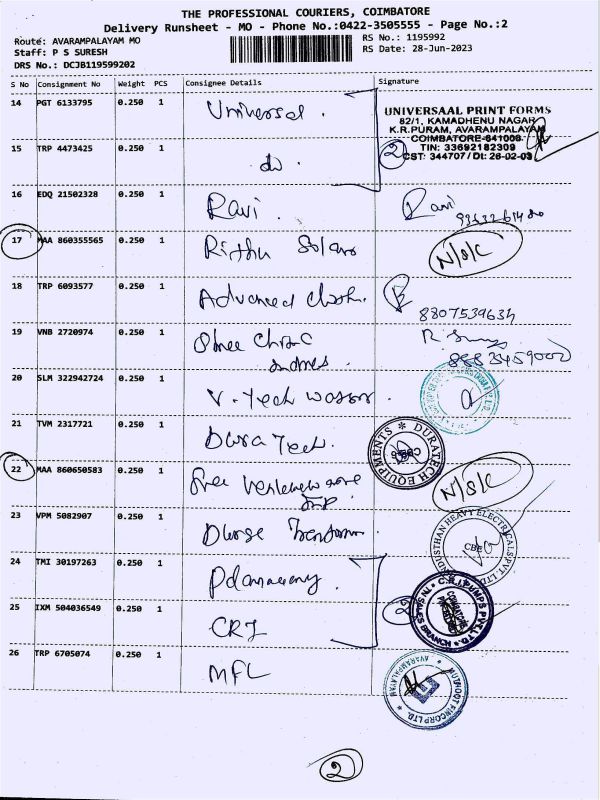 THE PROFESSIONAL COURIERS, COIMBATORE
Delivery Runsheet - MO - Phone No.:0422-3505555 - Page No.:2
Route: AVARAMPALAYAM MO
Staff: P S SURESH
DRS No.: DCJB119599202
RS No.: 1195992
RS Date: 28-Jun-2023
S No Consignment No Weight PCS Consignee Details Signature
14 PGT 6133795 0.250 1 Universal.
UNIVERSAAL PRINT FORMS
82/1, KAMADHENU NAGAR
K.R.PURAM, AVARAMPALAYAM
COIMBATORE-641006
TIN: 33692182309
CST: 344707 / Dt: 26-02-03
15 TRP 4473425 0.250 1 do. 2
16 EDQ 21502328 0.250 1 Ravi. Ravi
17 MAA 860355565 0.250 1 Rithu N/S/C
18 TRP 6093577 0.250 1 Advanced
8807539634
19 VNB 2720974 0.250 1 Shree
8883459000
20 SLM 322942724 0.250 1 V-Tech
21 TVM 2317721 0.250 1 Dura Tech.
DURATECH EQUIPMENTS
22 MAA 860650583 0.250 1 Sree N/S/C
23 VPM 5082907 0.250 1
INDUSTHAN HEAVY ELECTRICALS PVT. LTD
CBE
24 TMI 30197263 0.250 1
25 IXM 504036549 0.250 1 CRI 2
C.R.I PUMPS PVT. LTD
26 TRP 6705074 0.250 1 MFL
MUTHOOT FINCORP LTD.
AVARAMPALAYAM
2